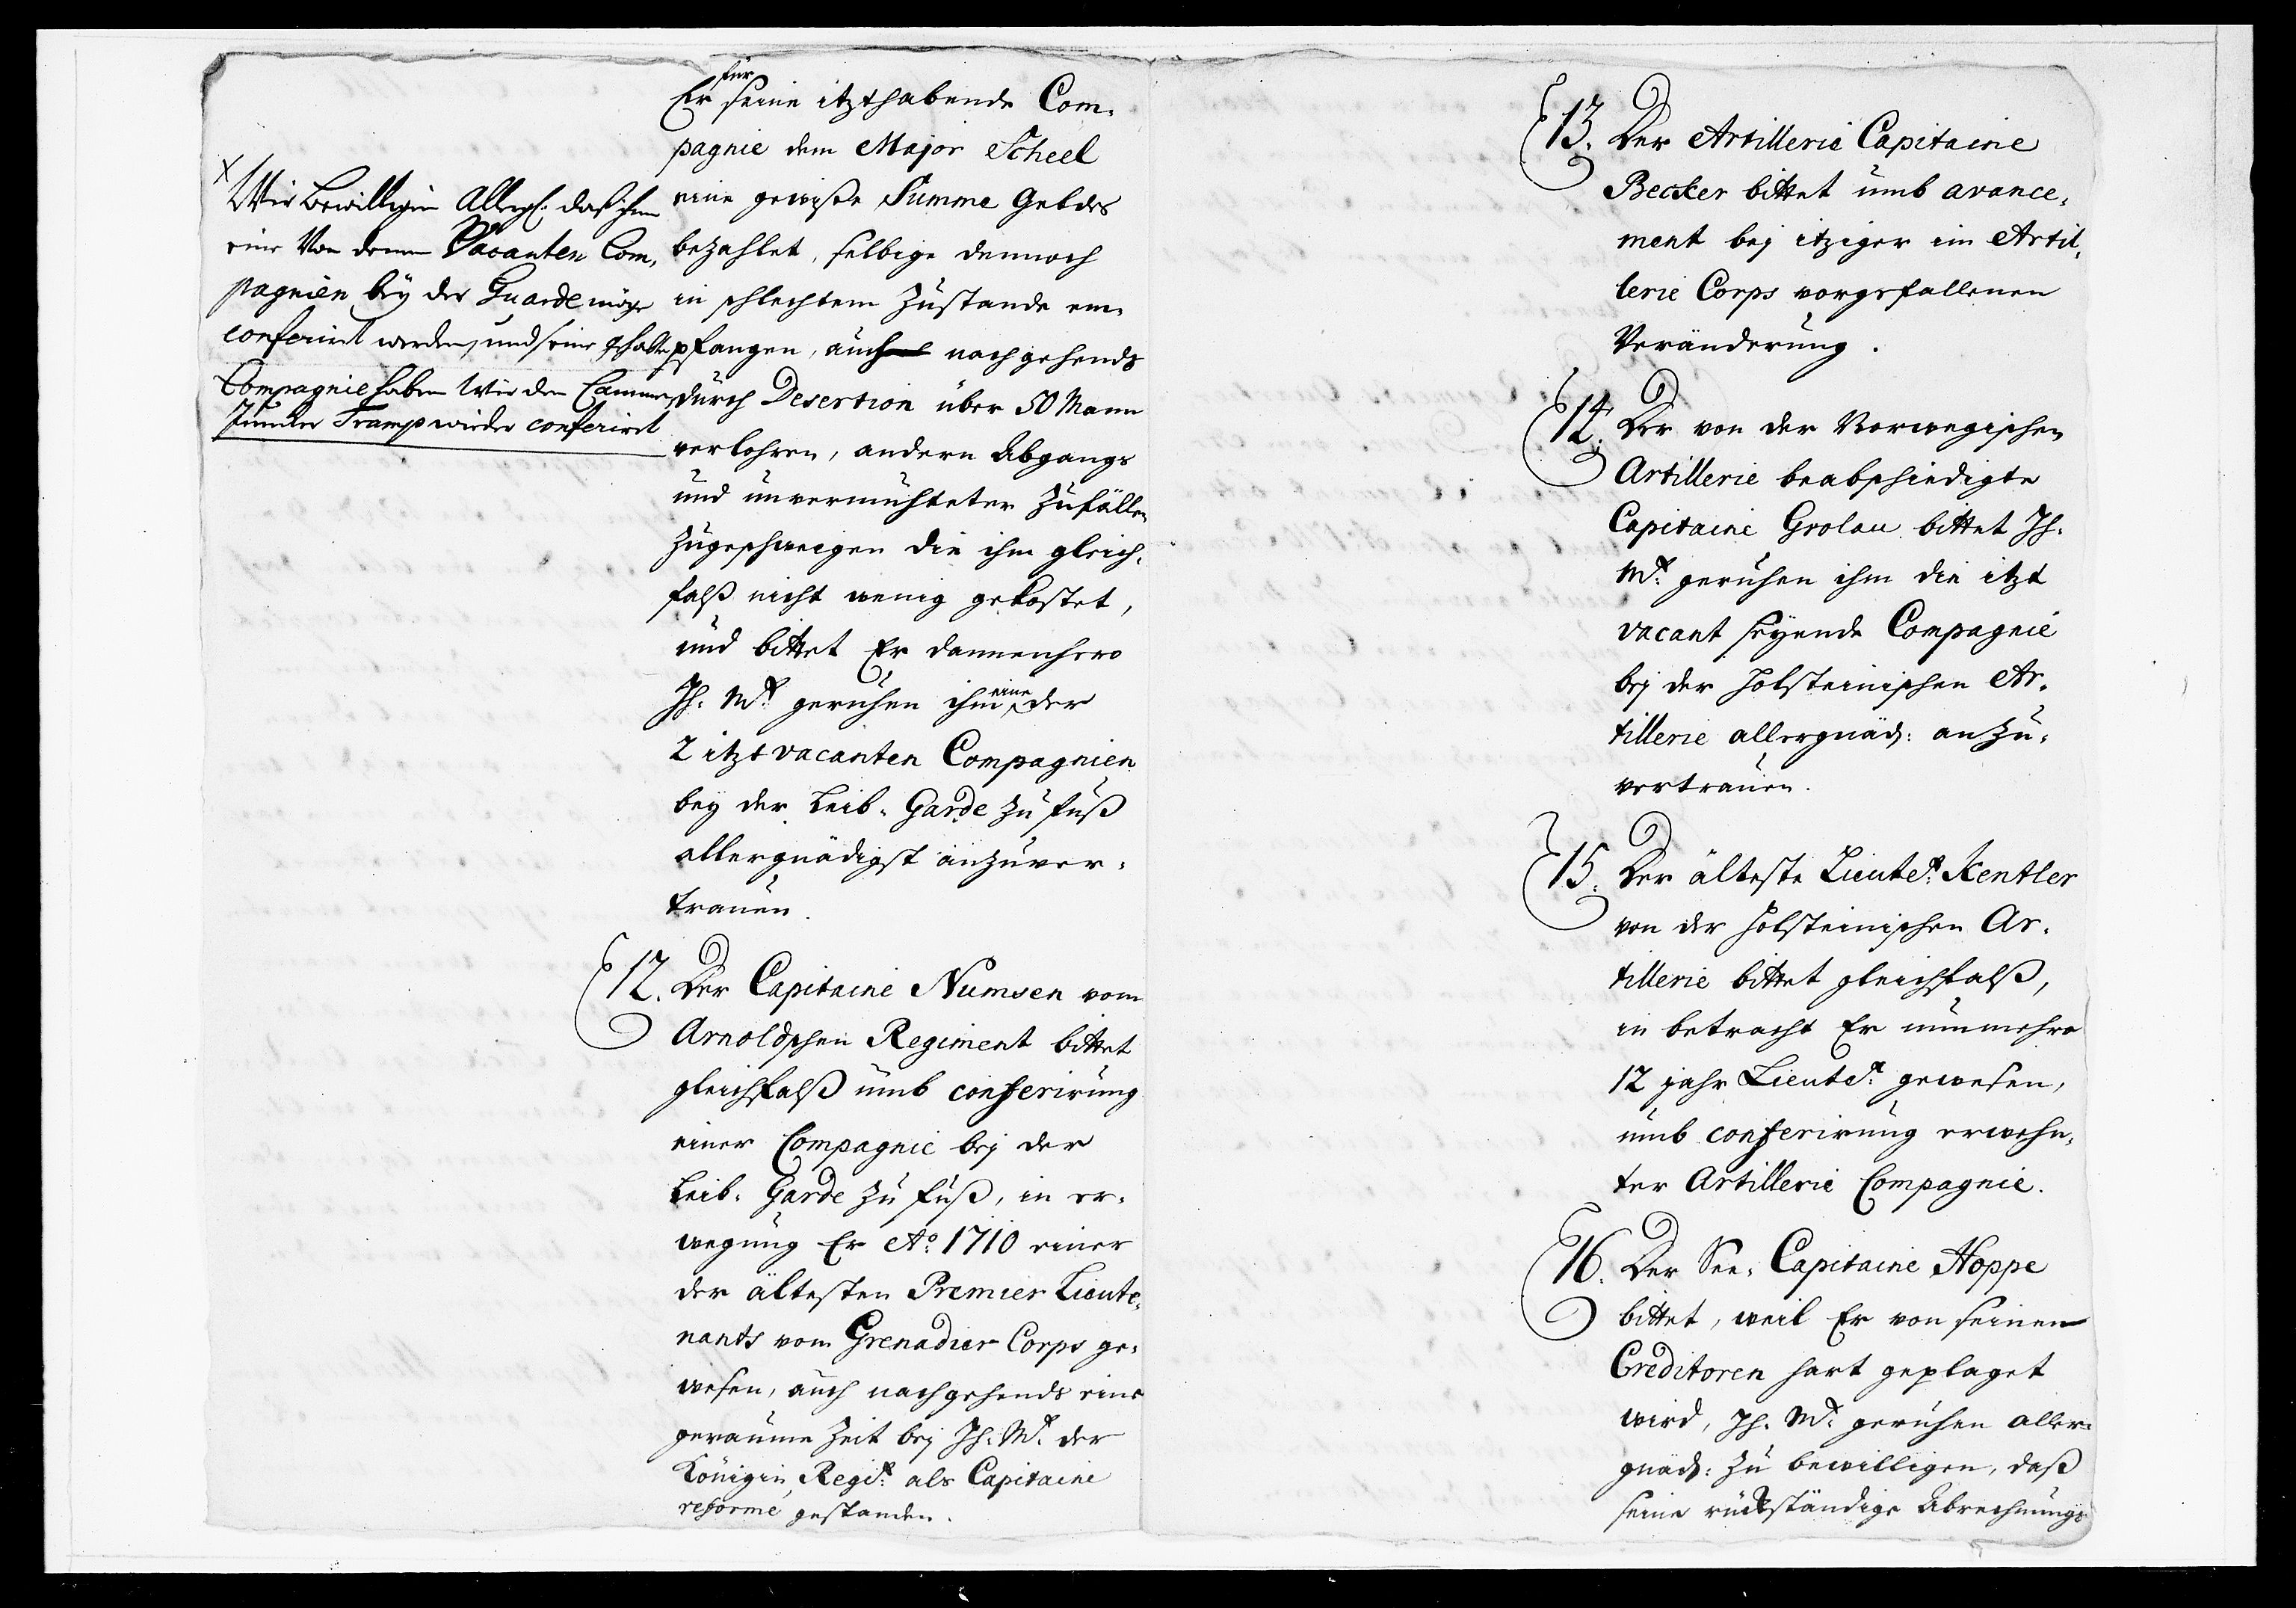 X
Wir Bewilligen Allergl. daß ihm
eine Von denen Vacanten Com-
pagnien beÿ der Guarde möge
conferirt werden, und seine gehabte
Compagnie haben Wir dem Cammer
Juncker Tramp wieder conferirt
Er für seine itzthabende Com-
pagnie dem Major Scheel
eine gewiße Summe Geldes
bezahlet, selbige dennoch
in schlechtem Zustande em-
pfangen, auch nachgehends
durch Desertion über 50 Mann
verlohren, andern Abgangs
und unvermuhteter Zufällen
zugeschweigen die ihm gleich-
falß nicht wenig gekostet,
und bittet Er dannenhero
Ih. Mt. geruhen ihm eine der
2 itzt vacanten Compagnien
bey der Leib-Garde zu fuß
allergnädigst anzuver-
trauen.
12. Der Capitaine Numsen vom
Arnoldschen Regiment bittet
gleichfalß umb conferirung
einer Compagnie bej der
Leib-Garde zu fuß, in er-
wegung Er Ao: 1710 einer
der ältesten Premier Lieute-
nants vom Grenadier Corps ge-
wesen, auch nachgehends eine
geraume Zeit bej Ih. Mt. der
Königin Regit: als Capitaine
reformé gestanden.
13. Der Artillerie Capitaine
Becker bittet umb avance-
ment bej itziger im Artil-
lerie Corps vorgefallenen
Veränderung.
14. Der von der Norwegischen
Artillerie beabschiedigte
Capitaine Grolau bittet Ih.
Mt: geruhen ihm die itzt
vacant seÿende Compagnie
bej der Holsteinischen Ar-
tillerie allergnäd: anzu-
vertrauen.
15. Der älteste Lieutet: Kentler
von der Holsteinischen Ar-
tillerie bittet gleichfalß,
in betracht Er nunmehro
12 jahr Lieutet: gewesen,
umb conferirung erwehn-
ter Artillerie Compagnie.
16. Der See-Capitaine Hoppe
bittet, weil Er von seinen
Creditoren hart geplaget
wird, Ih. Mt: geruhen aller-
gnäd: zu bewilligen, daß
seine rückständige Abrechnungs